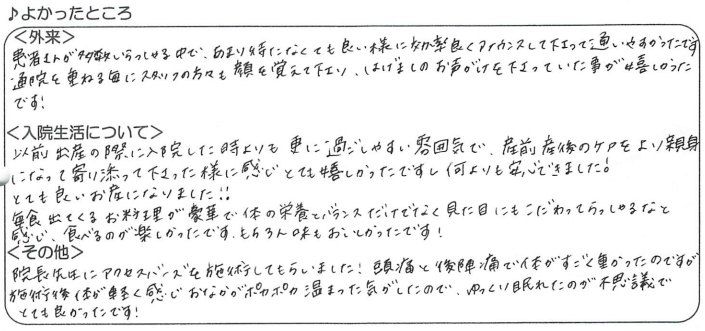 ♪よかったところ
<外来>
患者さんが多数いらっしゃる中で、あまり待たなくても良い様に効率良くアナウンスして下さって通いやすかったです
通院を重ねる毎にスタッフの方々も顔を覚えて下さり、はげましのお声がけを下さっていた事が嬉しかった
です!
<入院生活について>
以前出産の際に入院した時よりも更に過ごしやすい雰囲気で、産前産後のケアをより親身
になって寄り添って下さった様に感じとても嬉しかったですし何よりも安心できました!
とても良いお産になりました!!
毎食出てくるお料理が豪華で体の栄養とバランスだけでなく見た目にもこだわってらっしゃるなと
感じ、食べるのが楽しかったです。もちろん味もおいしかったです!
<その他>
院長先生にアクセスバーズを施術してもらいました!頭痛と後陣痛で体がすごく重かったのですが
施術後体が軽く感じおなかがポカポカ温まった気がしたので、ゆっくり眠れたのが不思議で
とても良かったです!